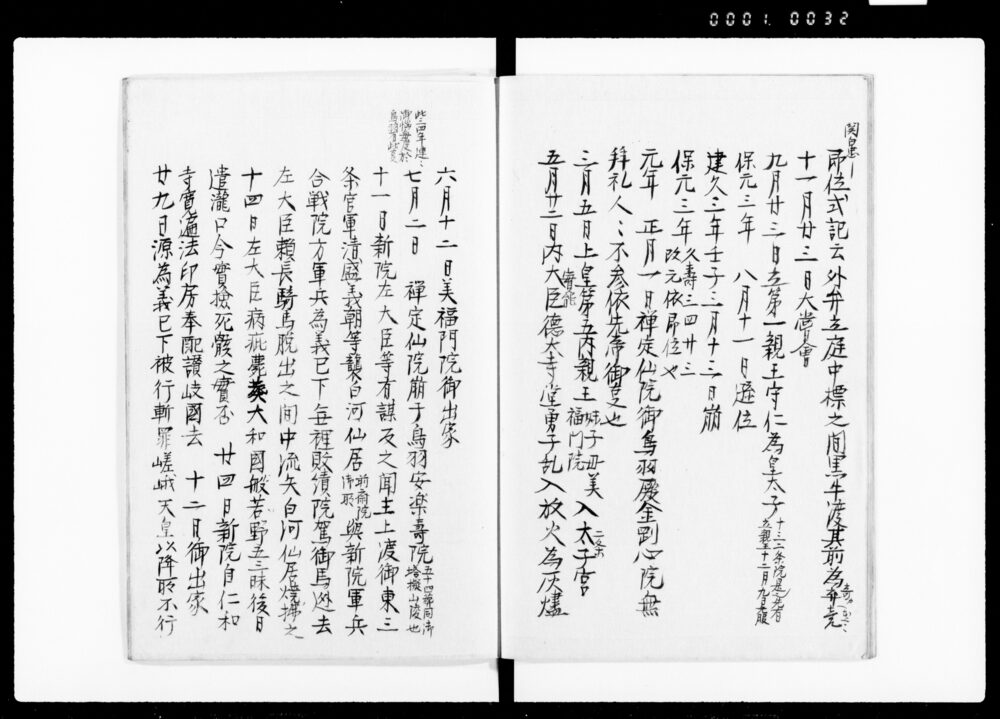 0001. 0032
即位式記云外弁立庭中標之間黒牛渡其前為
十一月廿三日大嘗会
九月廿三日立第一親王守仁為皇太子
保元三年 八月十一日遜位
建久三年壬子三月十三日崩
保元三年久寿三四廿三
改元依即位也
元年 正月一日禅定仙院御鳥羽殿金剛心院無
拝礼人〻不参依先帝御支也
三月五日上皇第五内親王姝子母美福門院入太子宮
五月廿二日内大臣実能徳大寺堂勇子乱入放火為灰燼
六月十二日美福門院御出家
七月二日 禅定仙院崩于鳥羽安楽寿院五十四
十一日新院左大臣等有謀反之聞主上渡御東三
条官軍清盛義朝等襲白河仙居前斎院御所與新院軍兵
合戦院方軍兵為義已下毎裡敗績院駕御馬逃去
左大臣頼長騎馬脱出之間中流矢白河仙居焼払之
十四日左大臣病疵薨葬大和国般若野五三昧後日
遣瀧口令実撿死骸之実否 廿四日新院自仁和
寺寛遍法印房奉配讃岐国去 十二日御出家
廿九日源為義已下被行斬罪嵯峨天皇以降所不行